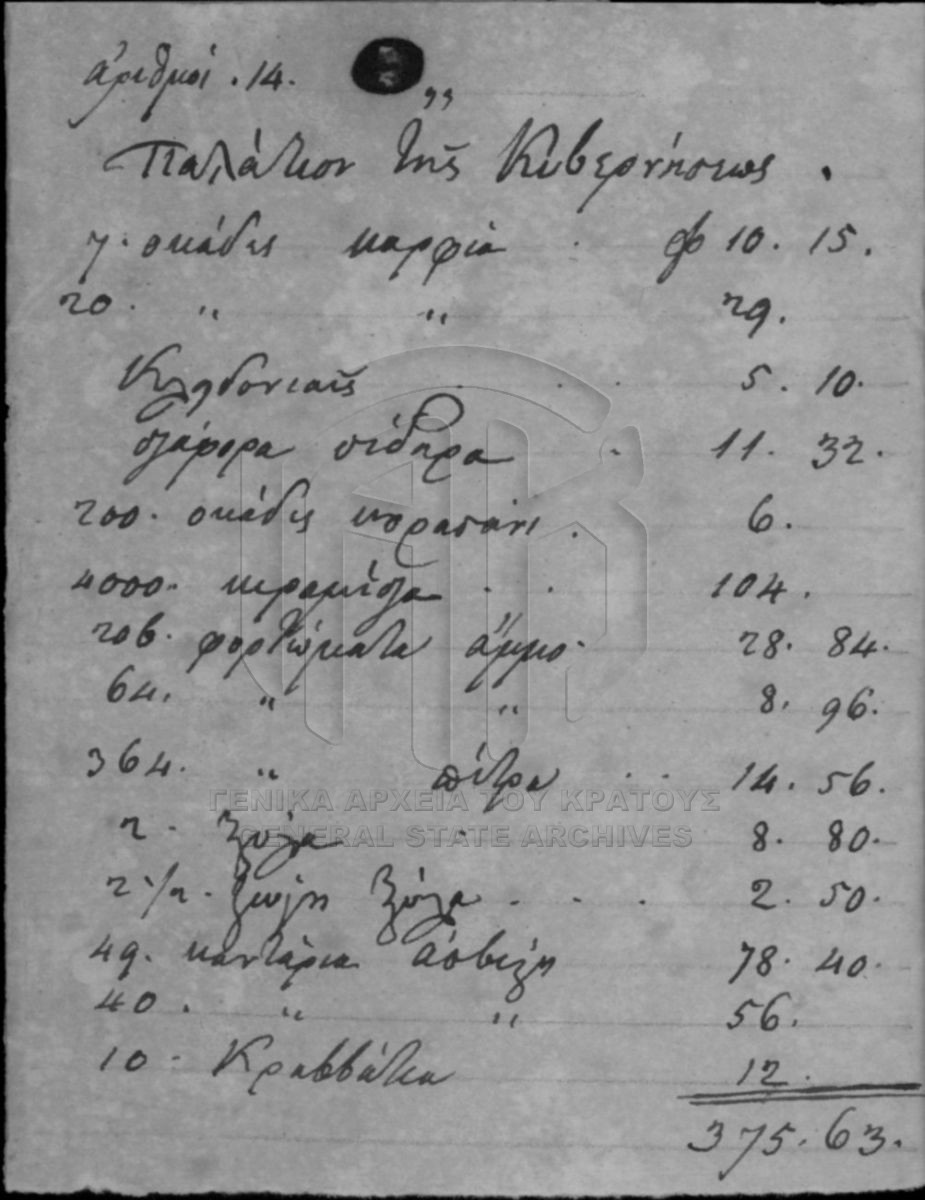 ἀριθμοί . 14.
„
Παλάτιον τῆς Κυβερνήσεως .
7. οκάδες καρφία . φ 10. 15.
20. „ „ 29.
5. 10.
διάφορα σίδηρα . 11. 32.
200. οκάδες κορασάνι . 6.
4000. κεραμίδια . . 104.
206. φορτώματα άμμο. 28. 84.
64. „ „ 8. 96.
364. „ πέτρα . . 14. 56.
ΓΕΝΙΚΑ ΑΡΧΕΙΑ ΤΟΥ ΚΡΑΤΟΥΣ
GENERAL STATE ARCHIVES
2. ξύλα . 8. 80.
2 1/2. ξύλα . . . 2. 50.
49. καντάρια ἀσβέστη 78. 40.
40. „ „ 56.
10. Κραββάτια 12.
375. 63.